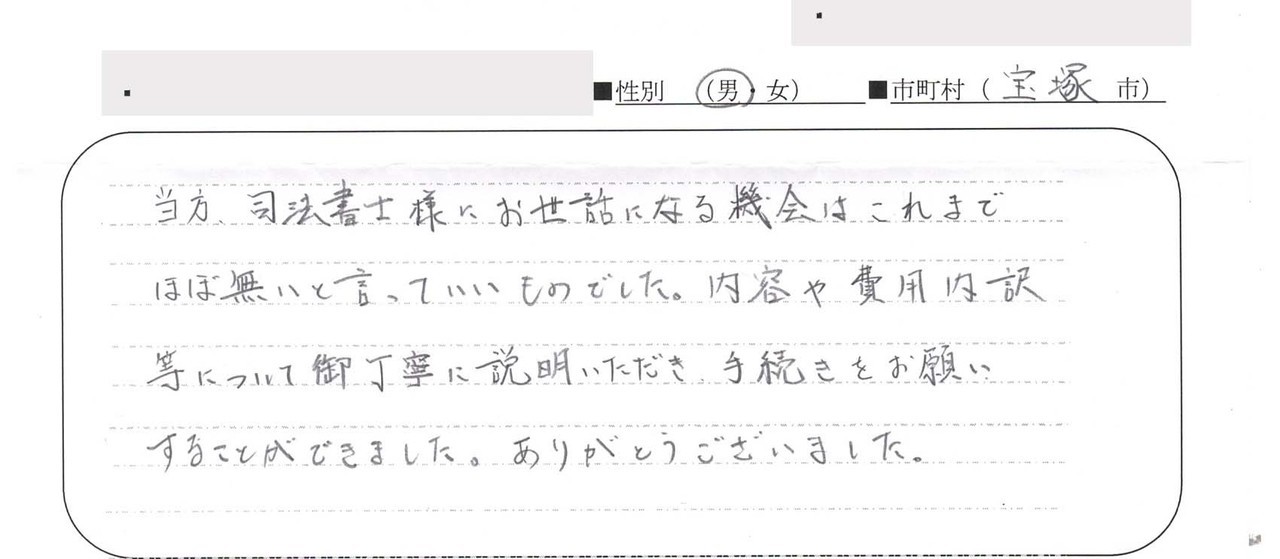 ■性別 （男・女） ■市町村（宝塚 市）
当方、司法書士様にお世話になる機会はこれまで
ほぼ無いと言っていいものでした。内容や費用内訳
等について御丁寧に説明いただき、手続きをお願い
することができました。ありがとうございました。